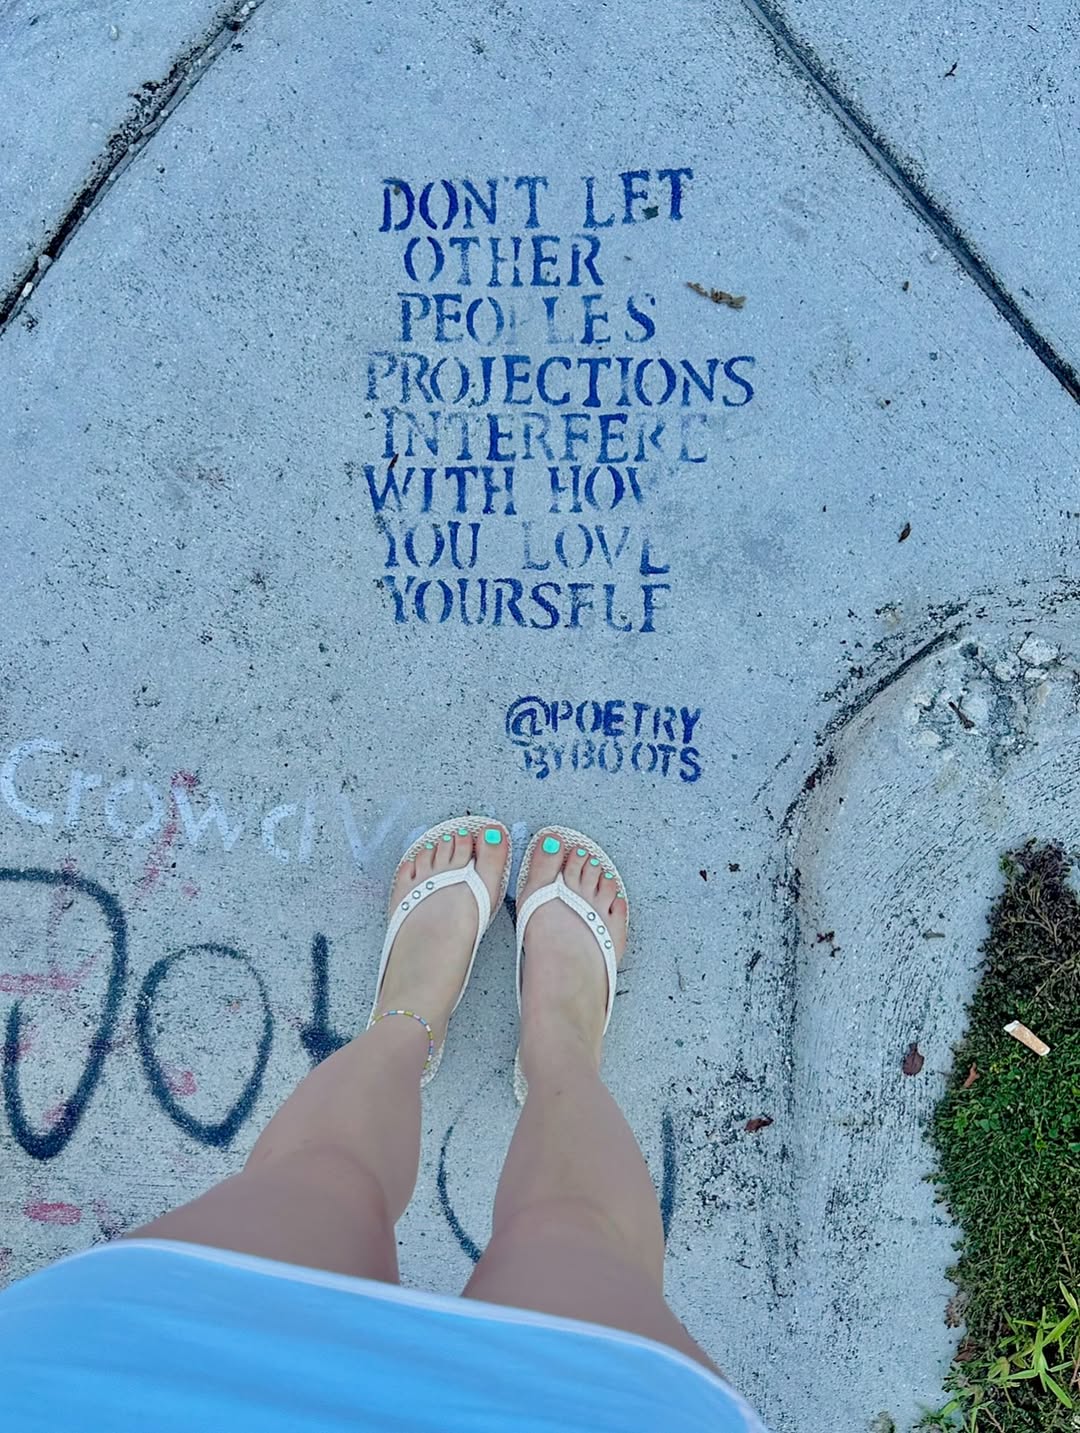 DON'T LET
OTHER
PEOPLES
PROJECTIONS
INTERFERE
WITH HOW
YOU LOVE
YOURSELF
@POETRY
BYBOOTS